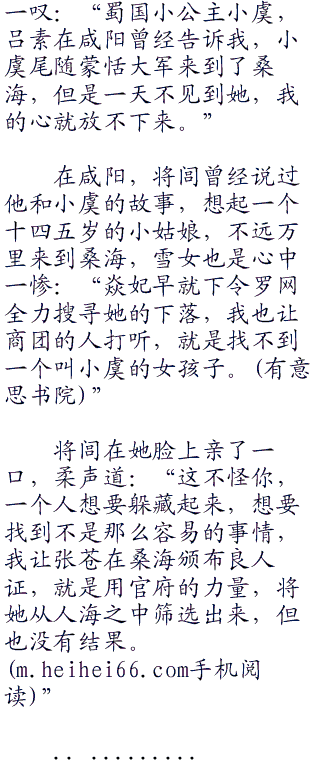 一叹：“蜀国小公主小虞，
吕素在咸阳曾经告诉我，小
虞尾随蒙恬大军来到了桑
海，但是一天不见到她，我
的心就放不下来。”
在咸阳，将闾曾经说过
他和小虞的故事，想起一个
十四五岁的小姑娘，不远万
里来到桑海，雪女也是心中
一惨：“焱妃早就下令罗网
全力搜寻她的下落，我也让
商团的人打听，就是找不到
一个叫小虞的女孩子。(有意
思书院)”
将闾在她脸上亲了一
口，柔声道：“这不怪你，
一个人想要躲藏起来，想要
找到不是那么容易的事情，
我让张苍在桑海颁布良人
证，就是用官府的力量，将
她从人海之中筛选出来，但
也没有结果。
(m.heihei66.com手机阅
读)”
.. .........